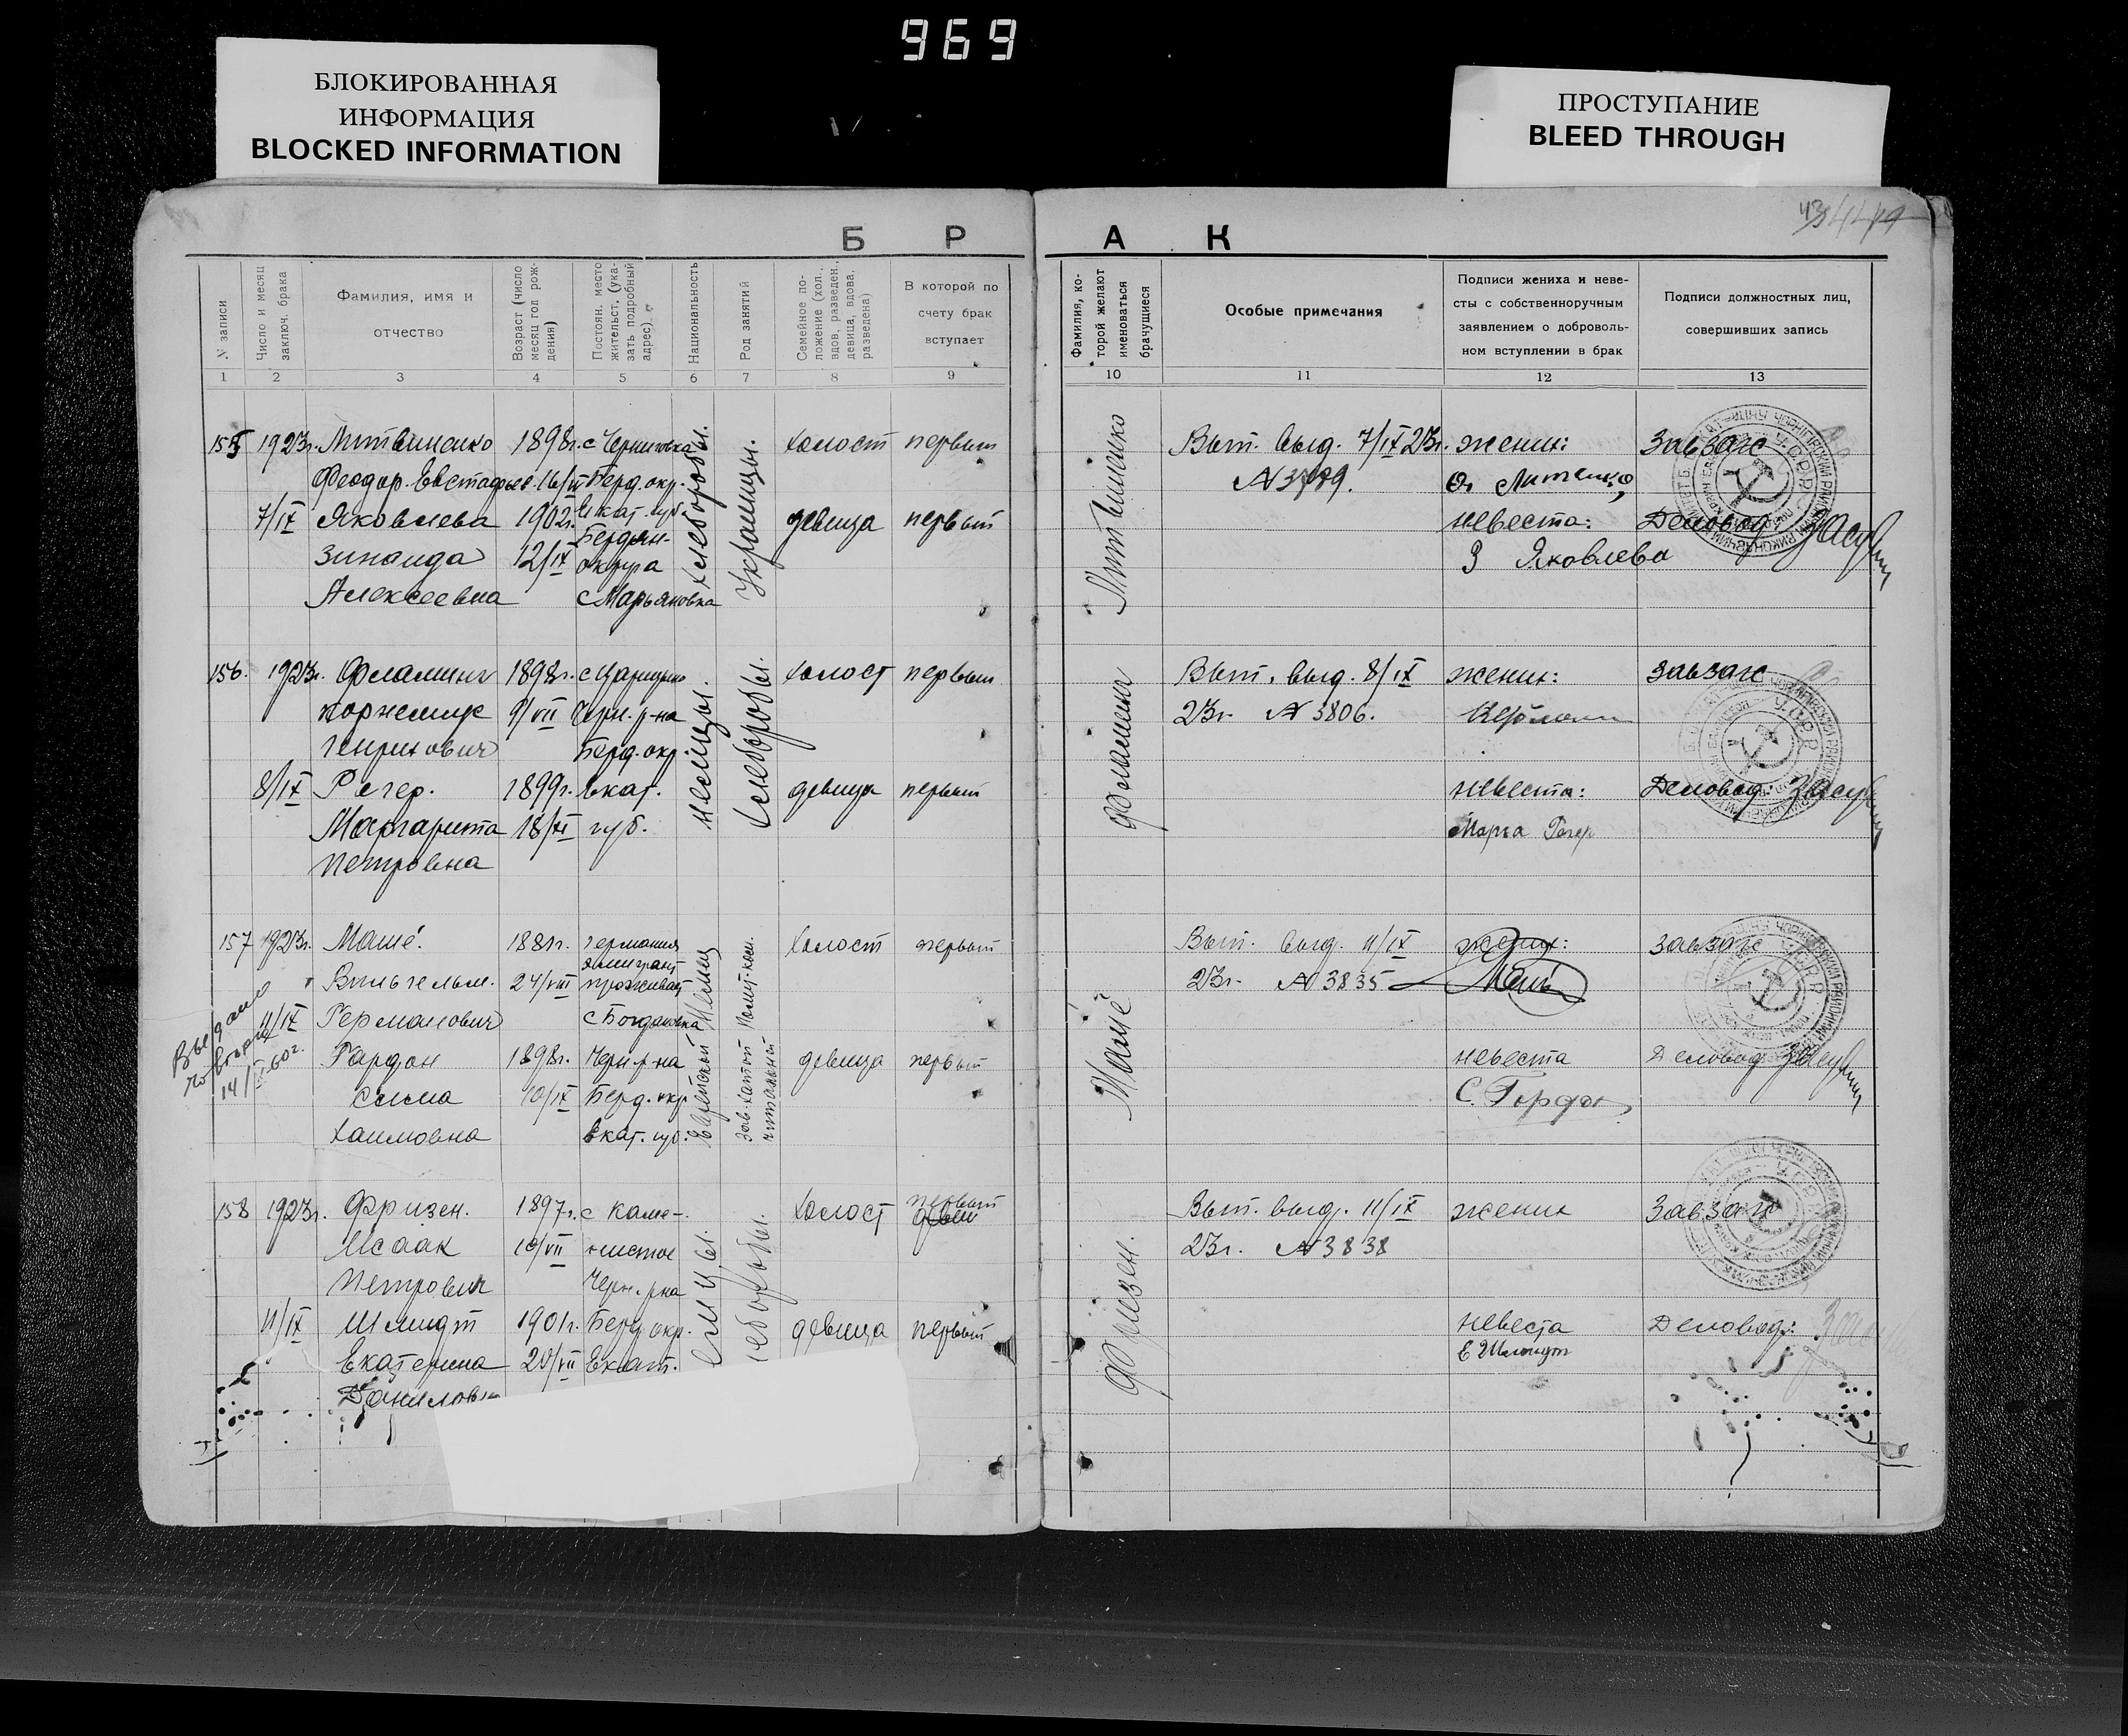 969
БЛОКИРОВАННАЯ
ИНФОРМАЦИЯ
BLOCKED INFORMATION
ПРОСТУПАНИЕ
BLEED THROUGH
Б Р А К
N записи
Число и месяц заключ. брака
Фамилия, имя и отчество
Возраст (число месяц год рождения)
Постоян. место жительст. (указать подробный адрес).
Национальность
Род занятий
Семейное положение (хол., вдов, разведен., девица, вдова, разведена)
В которой по счету брак вступает
Фамилия, которой желают именоваться брачущиеся
Особые примечания
Подписи жениха и невесты с собственноручным заявлением о добровольном вступлении в брак
Подписи должностных лиц, совершивших запись
1 2 3 4 5 6 7 8 9 10 11 12 13
155 1923г. Литвиненко 1898г. с Черниговка холост первый Выт. выд. 7/IX 23г. жених: Завзагс
Феодор Евстафьев. 16/ Берд. окр. N
7/IX Яковлева 1902г. Екат. губ. девица первый невеста: Деловод.
Бердян-
Зинаида 12/IX округа З Яковлева
Алексеевна с Марьяновка
хлеборобы.
Украинцы.
Литвиненко
156. 1923г. Фламинг 1898г. холост первый Выт. выд. 8/IX жених: Завзагс
Корнелиус 9/VII Черн. р-на 23г. N 3806.
Генрихович Берд. окр.
8/IX Регер. 1899г. Екат. девица первый невеста: Деловод.
Маргарита 18/XI губ.
Петровна
немцы.
хлеборобы.
Фламинг
157 1923г. Маше. 1881г. Германия холост первый Выт. выд. 11/IX жених: Завзагс
эмигрант
Вильгельм. 24/VIII проживает 23г. N 3835
11/IX Германович с Богдановка
Гардон 1898г. Черн. р-на девица первый невеста Деловод
Сима 10/IX Берд. окр. С. Гордон
Хаимовна Екат. губ.
Выдано
повторно
14/ 60г.
Немец
Еврейской
зав. хатой
читальной
Маше
158 1923г. Фризен. 1897г. с Каме- холост первый Выт. выд. 11/IX жених Завзагс
Исаак 10/VII нистое 23г. N 3838
Петрович Черн. р-на
11/IX Шмидт 1901г. Берд. окр. девица первый невеста Деловод:
Екатерина 20/VII Екат. Е Шмидт
Даниловн
Фризен.